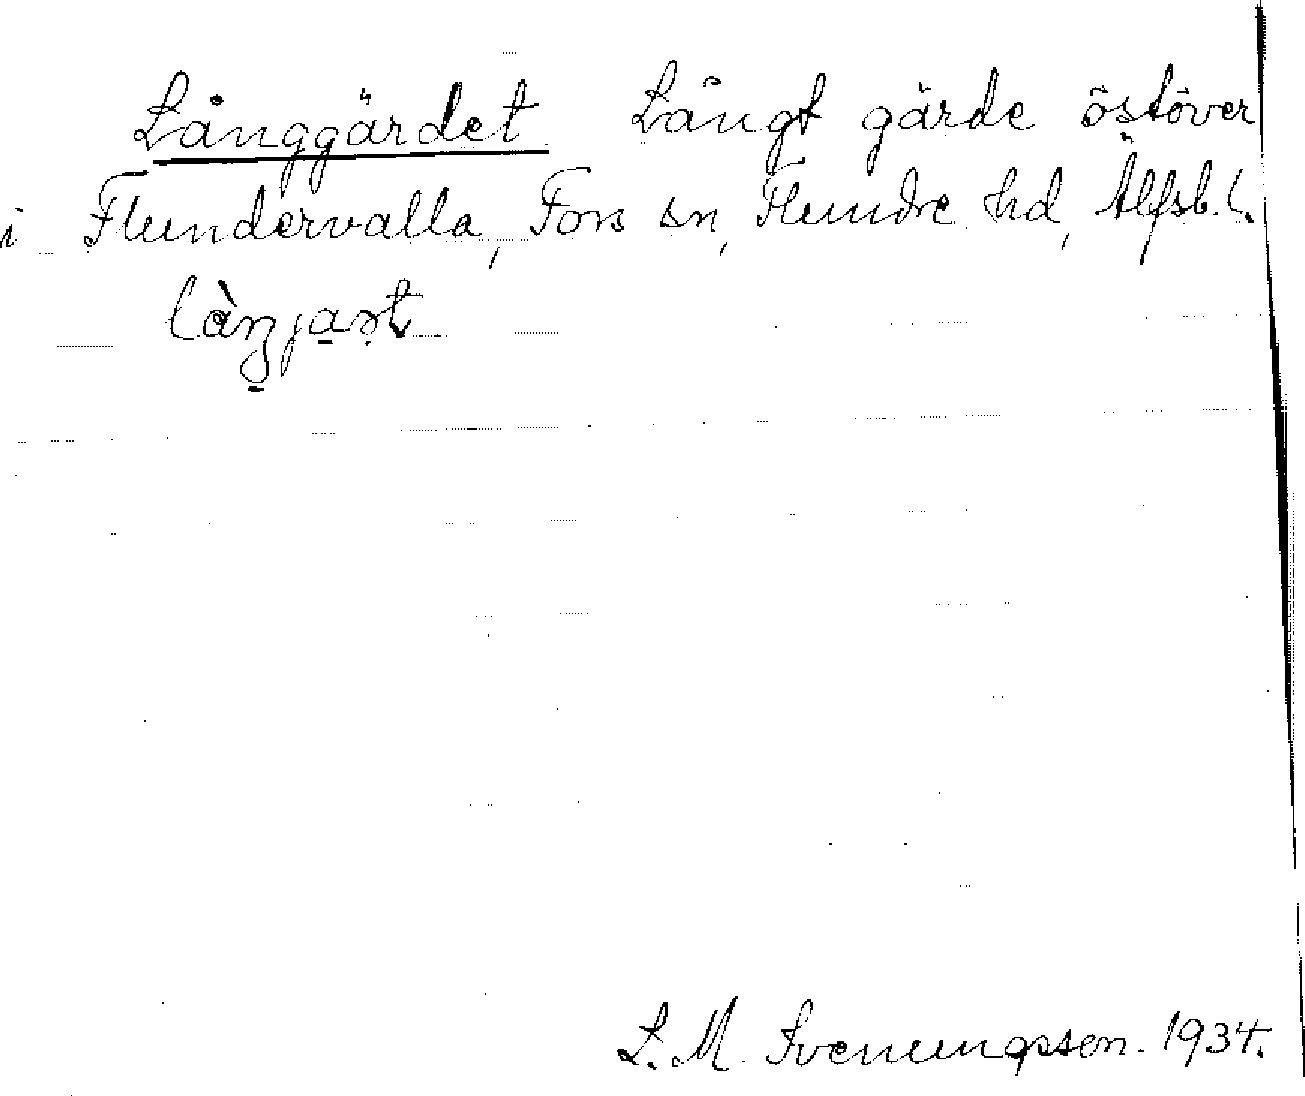 Långgärdet Långt gärde öståver
i Flundervalla, Fors sn, Flundre hd, Älfsb. l.
làŋjaṣt
L. M. Svenungsson. 1934.